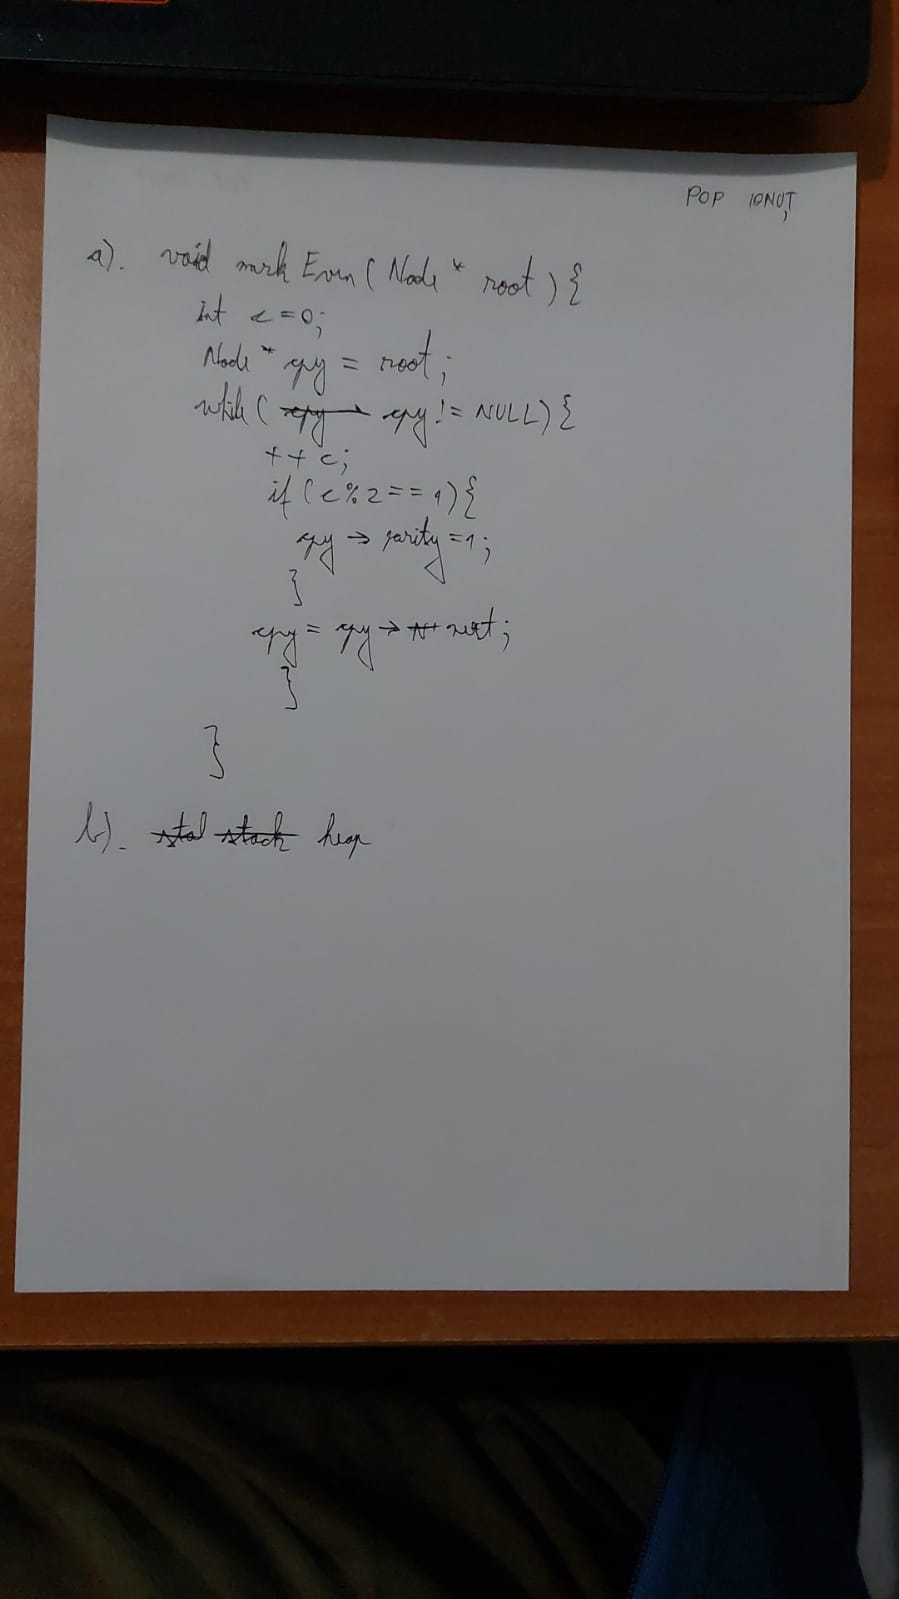 POP IONUȚ
a). void mark Even ( Node * root ) {
int c = 0;
Node * cpy = root ;
while ( cpy cpy != NULL) {
++ c;
if ( c % 2 == 1) {
cpy → parity = 1;
}
cpy = cpy → next ;
}
}
b). stal stack heap